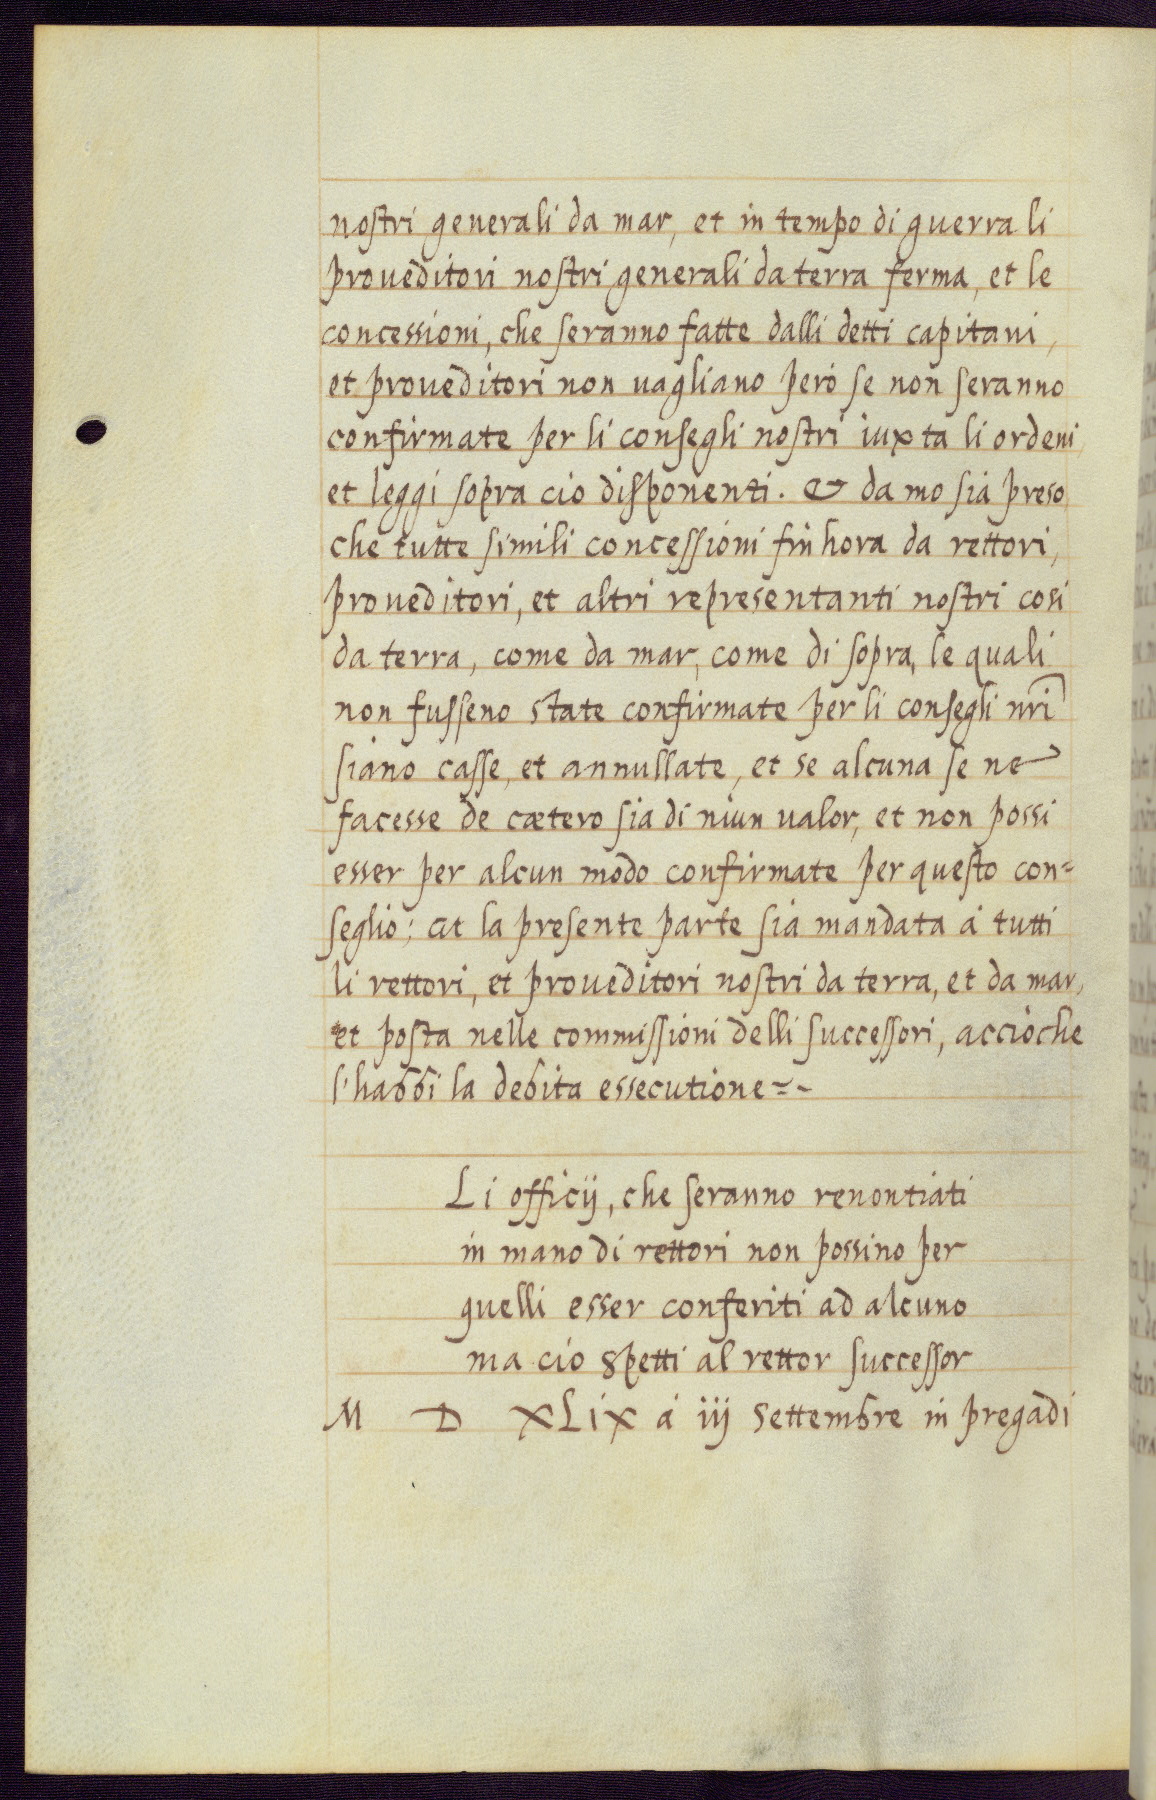 nostri generali da mar, et in tempo di guerra li
proueditori nostri generali da terra ferma, et le
concessioni, che seranno fatte dalli detti capitani,
et proueditori non uagliano però se non seranno
confirmate per li consegli nostri iuxta li ordeni
et leggi sopra cio disponenti. & da mo sia preso
che tutte simili concessioni fin hora da rettori,
proueditori, et altri representanti nostri cosi
da terra, come da mar, come di sopra, le quali
non fusseno state confirmate per li consegli nri
siano casse, et annullate, et se alcuna se ne
facesse de cætero sia di niun ualor, et non possi
esser per alcun modo confirmate per questo con=
seglio; et la presente parte sia mandata à tutti
li rettori, et proueditori nostri da terra, et da mar,
et posta nelle commissioni delli successori, acciòche
l'habbi la debita essecutione=-
Li officij, che seranno renontiati
in mano di rettori non possino per
quelli esser conferiti ad alcuno
ma cio spetti al rettor successor
M D XLIX à iij Settembre in pregadi